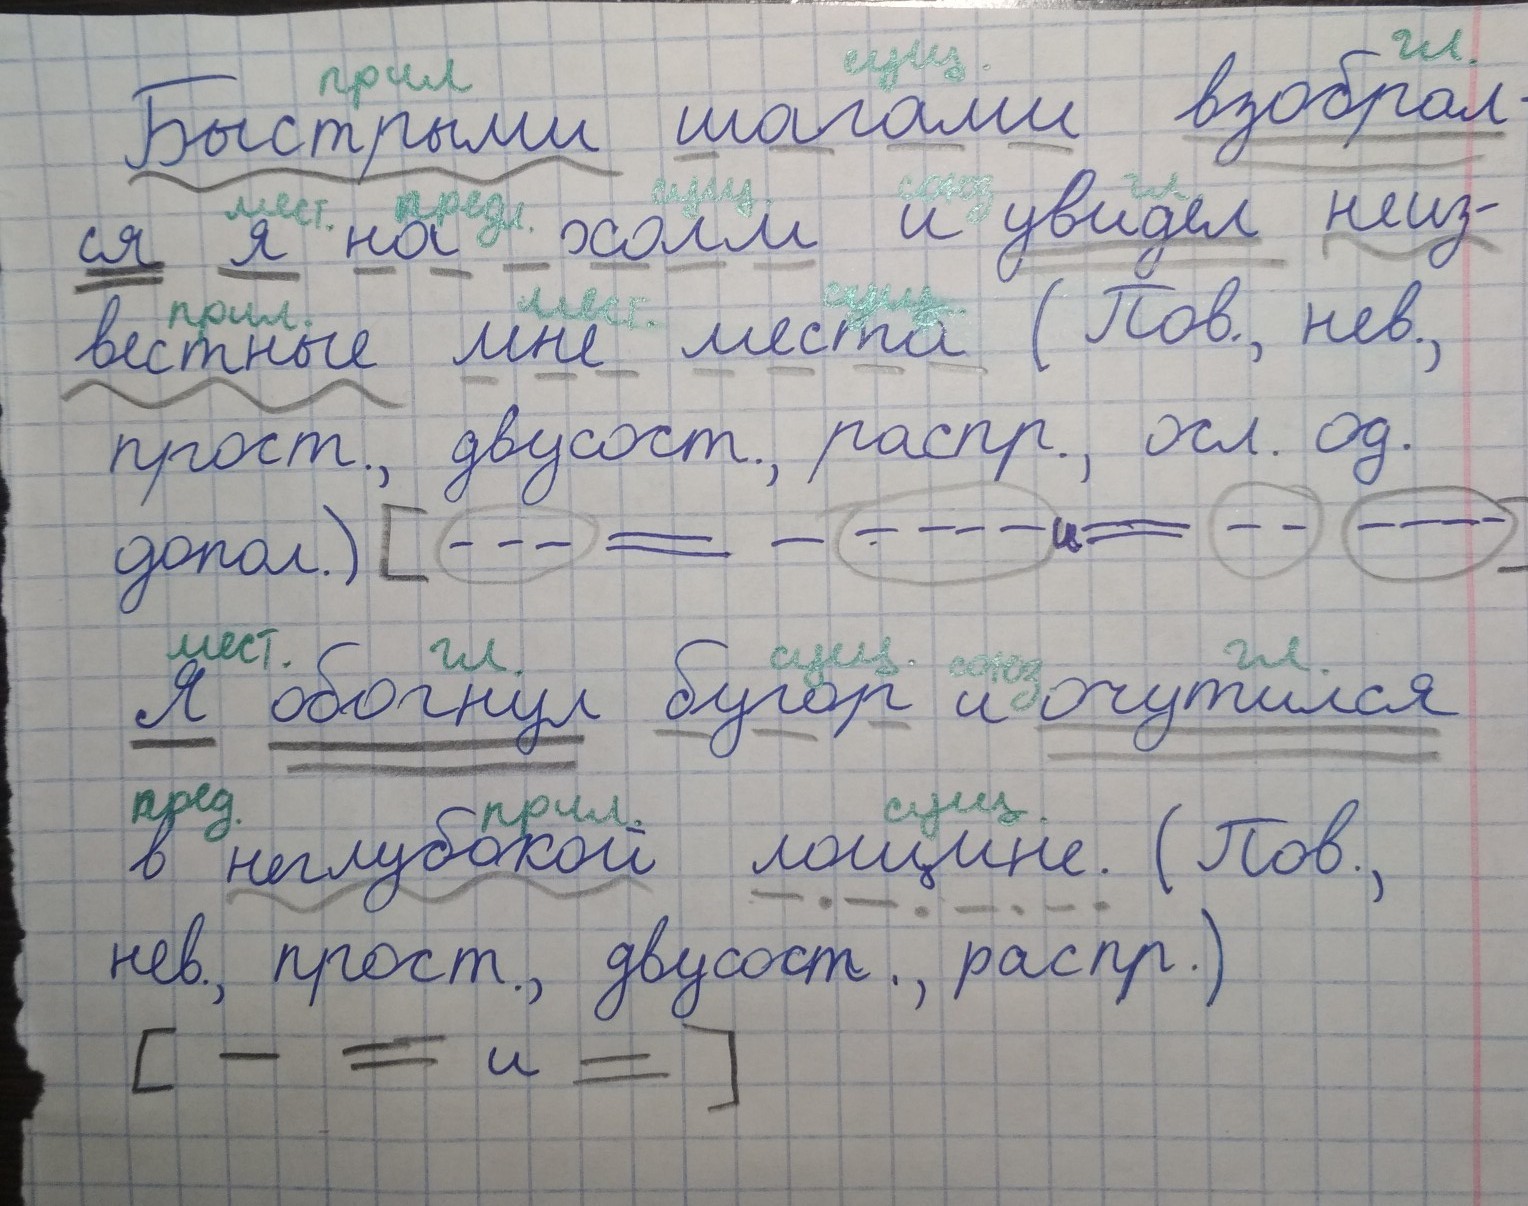 прил сущ. гл.
Быстрыми шагами взобрал-
мест. предл. сущ. союз гл.
ся я на холм и увидел неиз-
прил. мест. сущ.
вестные мне места (Пов., нев.,
прост., двусост., распр., осл. од.
допол.) [ --- = - ---- и = -- ---- ]
мест. гл. сущ. союз гл.
Я обогнул бугор и очутился
пред. прил. сущ.
в неглубокой лощине. (Пов.,
нев., прост., двусост., распр.)
[ — = и = ]